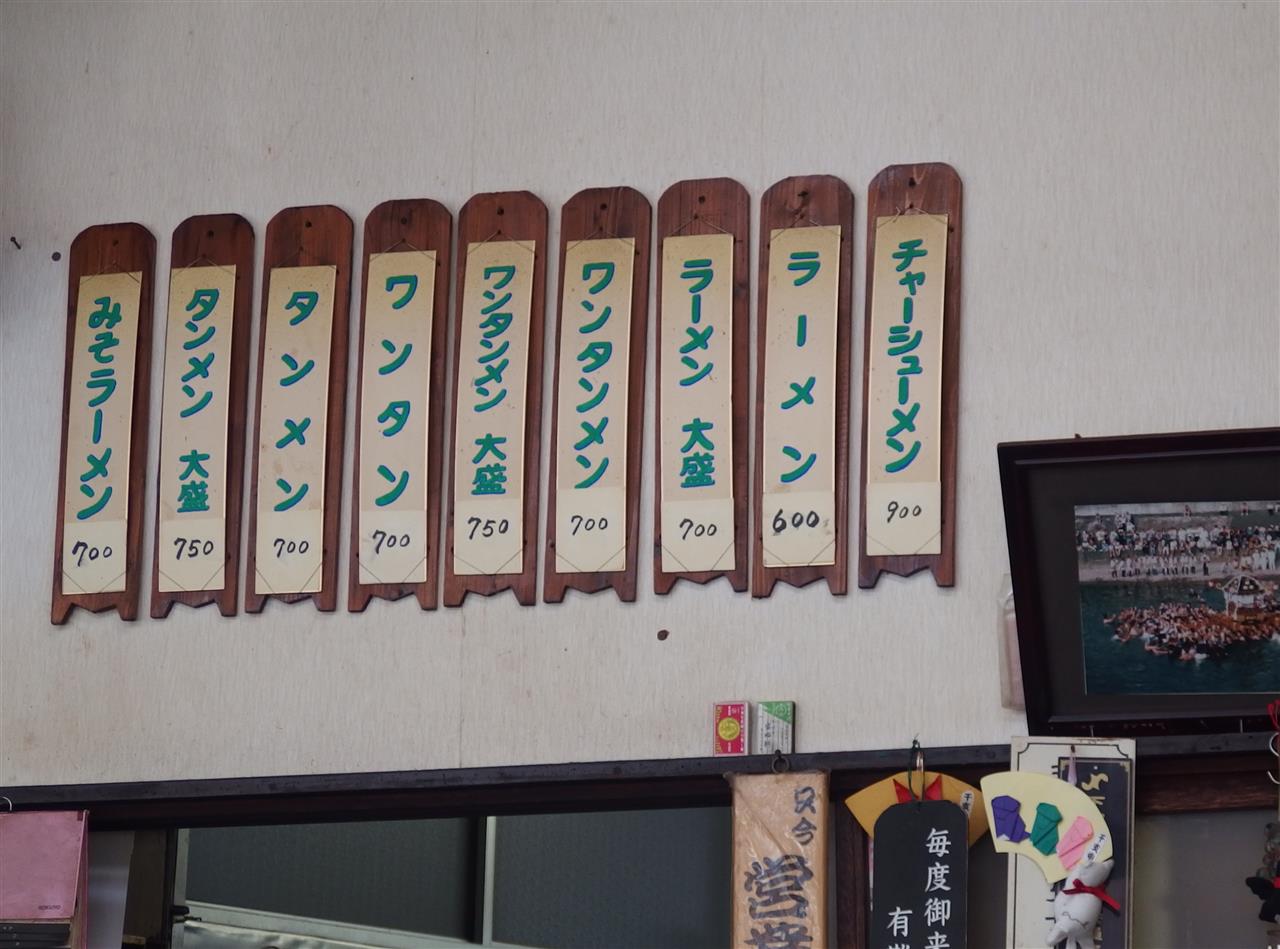 チャーシューメン
900
ラーメン
600
ラーメン 大盛
700
ワンタンメン
700
ワンタンメン 大盛
750
ワンタン
700
タンメン
700
タンメン 大盛
750
みそラーメン
700
只今
営業
毎度御来
KOKUYO